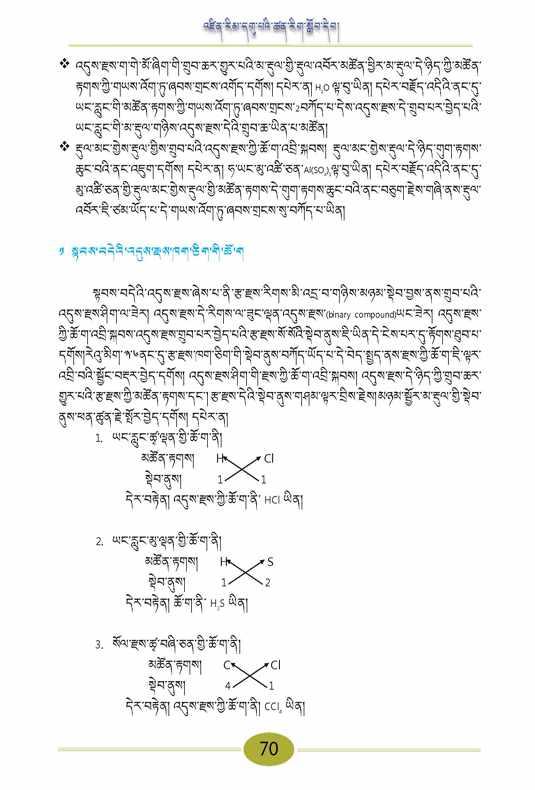 འཛིན་རིམ་དགུ་པའི་ཚན་རིག་སློབ་དེབ།
❖ འདུས་རྫས་ག་གེ་མོ་ཞིག་གི་གྲུབ་ཆར་གྱུར་པའི་མ་རྡུལ་གྱི་རྡུལ་འབོར་མཚོན་ཕྱིར་མ་རྡུལ་དེ་ཉིད་ཀྱི་མཚོན་
རྟགས་ཀྱི་གཡས་འོག་ཏུ་ཞབས་གྲངས་འགོད་དགོས། དཔེར་ན། H₂O ལྟ་བུ་ཡིན། དཔེར་བརྗོད་འདིའི་ནང་དུ་
ཡང་རླུང་གི་མཚོན་རྟགས་ཀྱི་གཡས་འོག་ཏུ་ཞབས་གྲངས་2བཀོད་པ་དེས་འདུས་རྫས་དེ་གྲུབ་པར་བྱེད་པའི་
ཡང་རླུང་གི་མ་རྡུལ་གཉིས་འདུས་རྫས་དེའི་གྲུབ་ཆ་ཡིན་པ་མཚོན།
❖ རྡུལ་མང་གྱེས་རྡུལ་གྱིས་གྲུབ་པའི་འདུས་རྫས་ཀྱི་ཚོ་ག་འབྲི་སྐབས། རྡུལ་མང་གྱེས་རྡུལ་དེ་ཉིད་གུག་རྟགས་
ཆུང་བའི་ནང་འཇུག་དགོས། དཔེར་ན། ཧ་ཡང་མུ་འཚི་ཅན་Al(SO₄)₃ལྟ་བུ་ཡིན། དཔེར་བརྗོད་འདིའི་ནང་དུ་
མུ་འཚི་ཅན་གྱི་རྡུལ་མང་གྱེས་རྡུལ་གྱི་མཚོན་རྟགས་དེ་གུག་རྟགས་ཆུང་བའི་ནང་བཅུག་རྗེས་གཞི་ནས་རྡུལ་
འབོར་ཇི་ཙམ་ཡོད་པ་དེ་གཡས་འོག་ཏུ་ཞབས་གྲངས་སུ་བཀོད་པ་ཡིན།
༡ སྐབས་བདེའི་འདུས་རྫས་ཁག་ཅིག་གི་ཚོ་ག
སྟབས་བདེའི་འདུས་རྫས་ཞེས་པ་ནི་རྩ་རྫས་རིགས་མི་འདྲ་བ་གཉིས་མཉམ་སྡེབ་བྱས་ནས་གྲུབ་པའི་
འདུས་རྫས་ཤིག་ལ་ཟེར། འདུས་རྫས་དེ་རིགས་ལ་ཟུང་ལྡན་འདུས་རྫས་(binary compound)ཡང་ཟེར། འདུས་རྫས་
ཀྱི་ཚོ་ག་འབྲི་སྐབས་འདུས་རྫས་གྲུབ་པར་བྱེད་པའི་རྩ་རྫས་སོ་སོའི་སྡེབ་ནུས་ཇི་ཡིན་དེ་ངེས་པར་དུ་རྟོགས་ཐུབ་པ་
དགོས། རེའུ་མིག་༥་༦ནང་དུ་རྩ་རྫས་ཁག་ཅིག་གི་སྡེབ་ནུས་བཀོད་ཡོད་པ་དེ་བེད་སྤྱད་ནས་རྫས་ཀྱི་ཚོ་ག་ཇི་ལྟར་
འབྲི་བའི་སྦྱོང་བརྡར་བྱེད་དགོས། འདུས་རྫས་ཤིག་གི་རྫས་ཀྱི་ཚོ་ག་འབྲི་སྐབས། འདུས་རྫས་དེ་ཉིད་ཀྱི་གྲུབ་ཆར་
གྱུར་པའི་རྩ་རྫས་ཀྱི་མཚོན་རྟགས་དང་། རྩ་རྫས་དེའི་སྡེབ་ནུས་གཤམ་ལྟར་བྲིས་རྗེས། མཉམ་སྦྱོར་མ་རྡུལ་གྱི་སྡེབ་
ནུས་ཕན་ཚུན་རྗེ་སྤོར་བྱེད་དགོས། དཔེར་ན།
1. ཡང་རླུང་ཚྭ་ལྡན་གྱི་ཚོ་ག་ནི།
མཚོན་རྟགས། H Cl
སྡེབ་ནུས། 1 1
དེར་བརྟེན། འདུས་རྫས་ཀྱི་ཚོ་ག་ནི་ HCl ཡིན།
2. ཡང་རླུང་མུ་ལྡན་གྱི་ཚོ་ག་ནི།
མཚོན་རྟགས། H S
སྡེབ་ནུས། 1 2
དེར་བརྟེན། ཚོ་ག་ནི་ H₂S ཡིན།
3. སོལ་རྫས་ཚྭ་བཞི་ཅན་གྱི་ཚོ་ག་ནི།
མཚོན་རྟགས། C Cl
སྡེབ་ནུས། 4 1
དེར་བརྟེན། འདུས་རྫས་ཀྱི་ཚོ་ག་ནི། CCl₄ ཡིན།
70